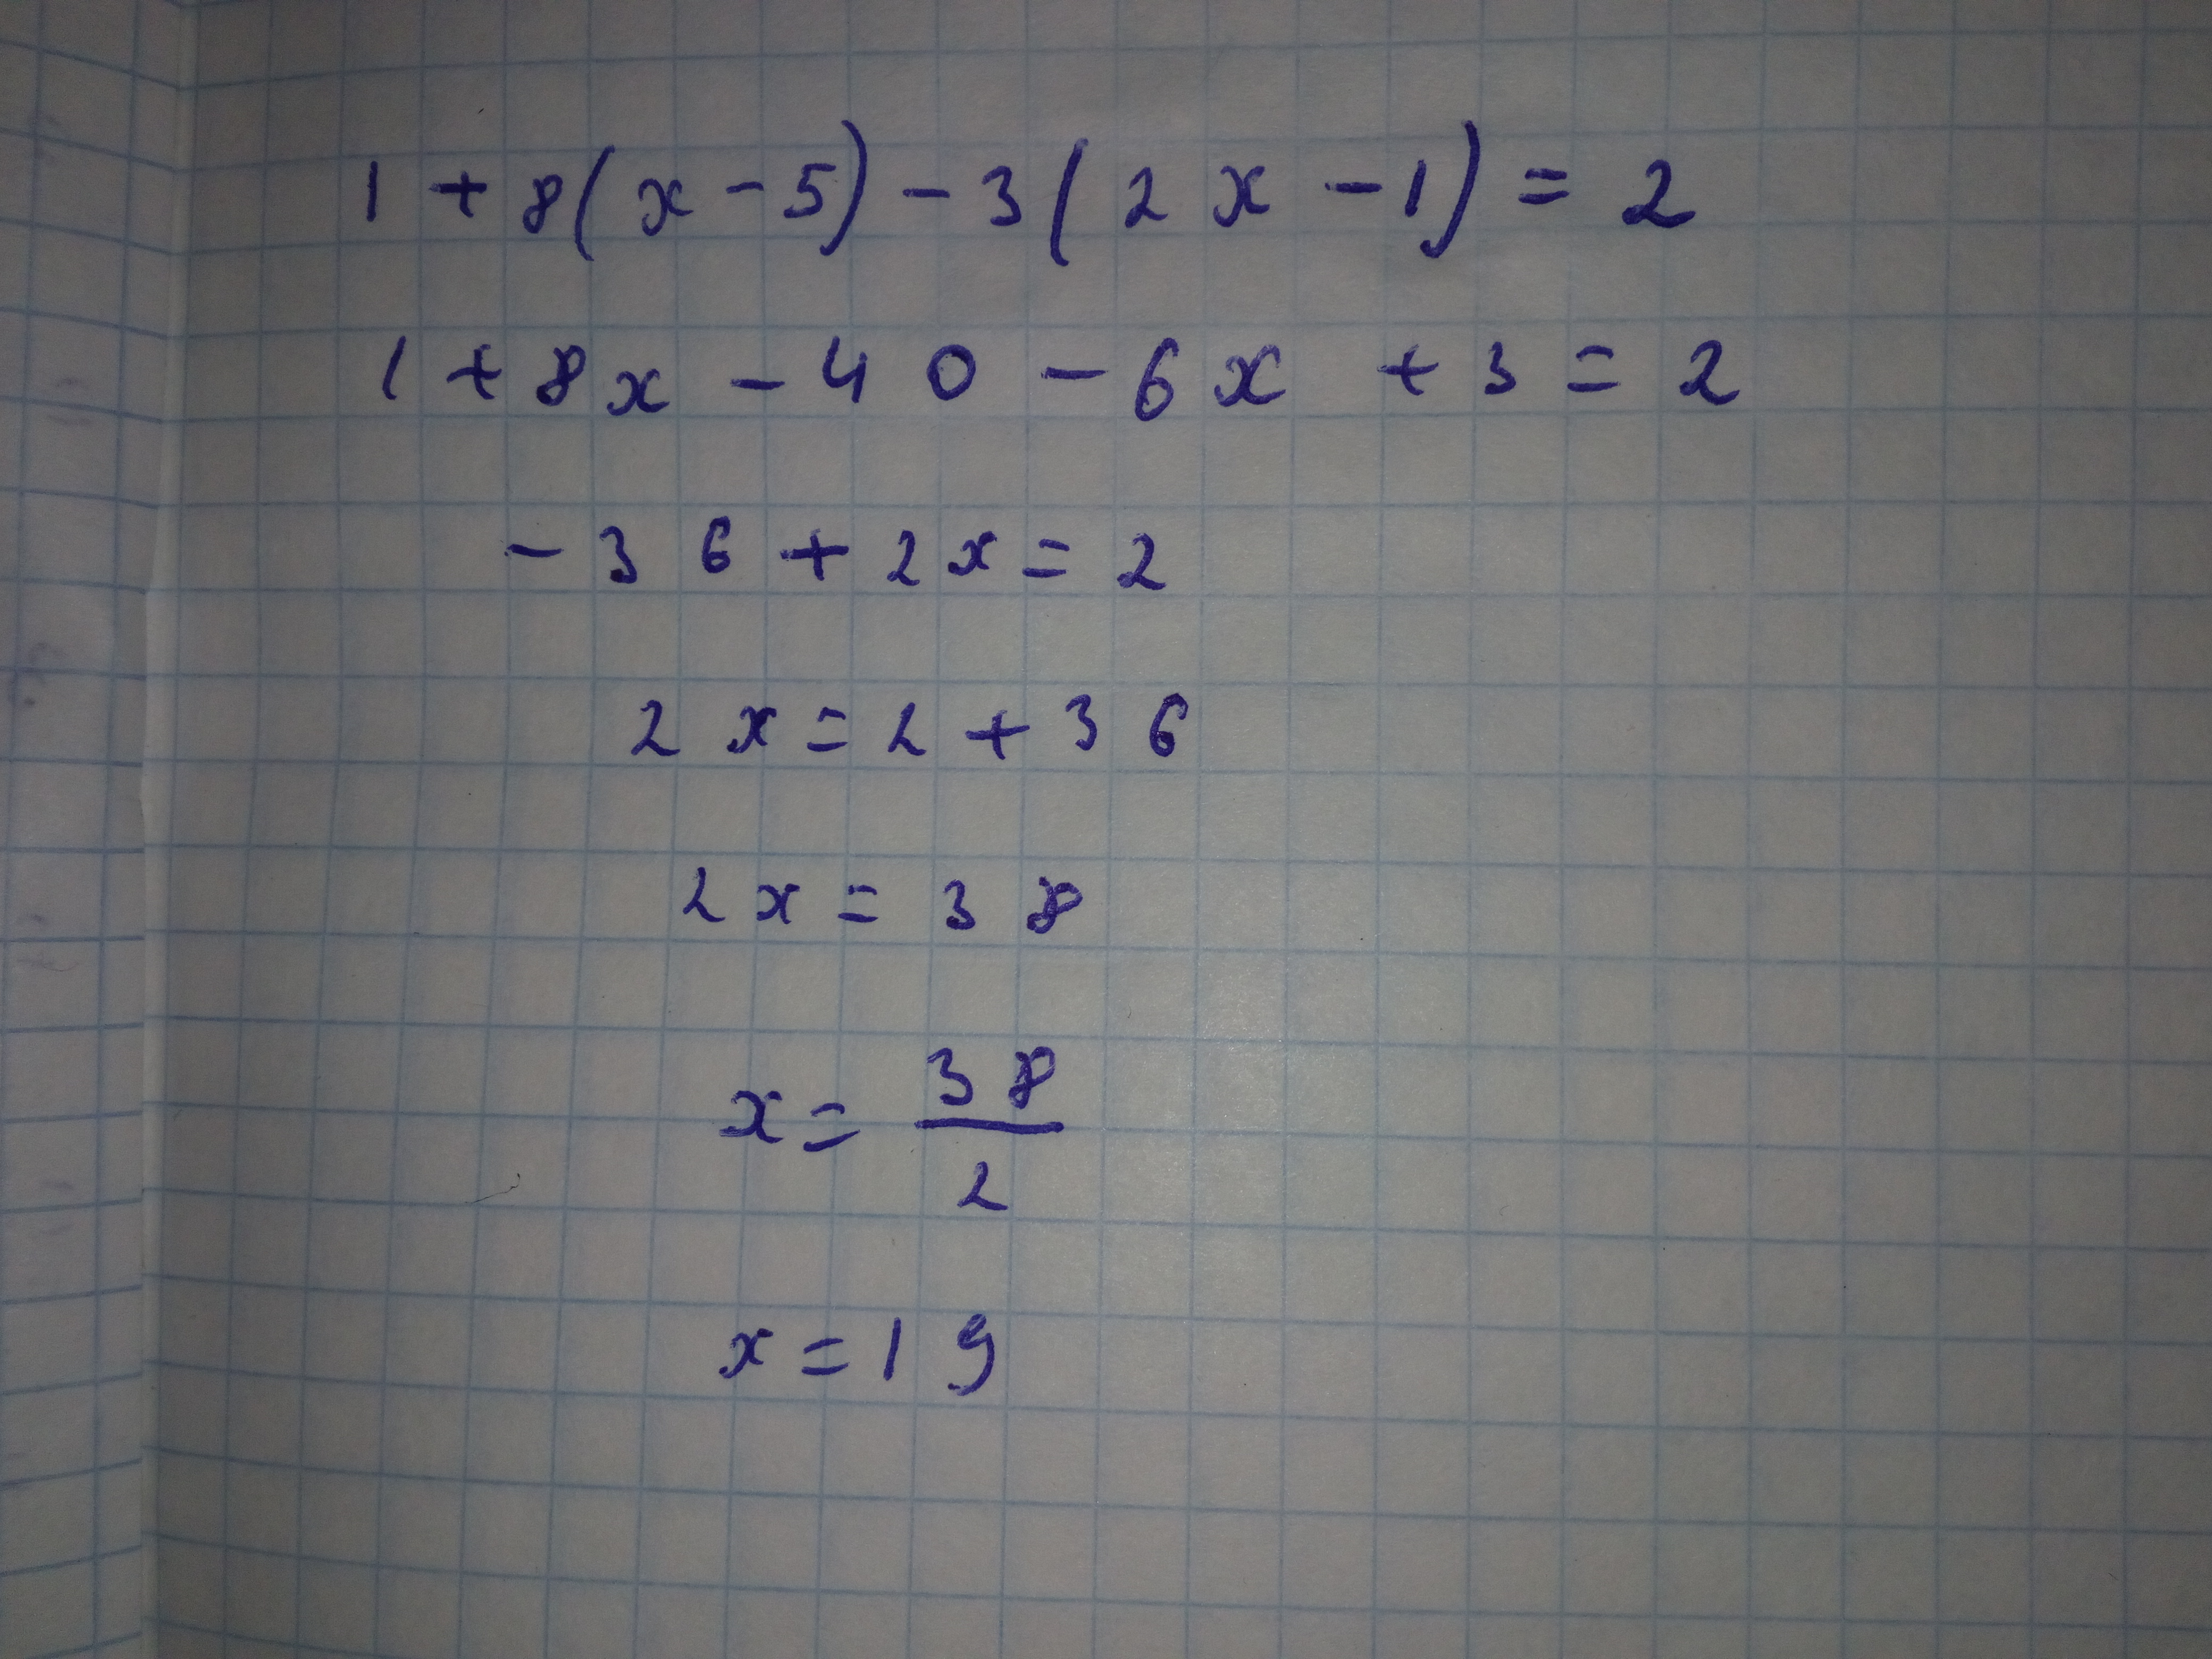 1 + 8(x - 5) - 3(2x - 1) = 2
1 + 8x - 40 - 6x + 3 = 2
- 36 + 2x = 2
2x = 2 + 36
2x = 38
x = 38/2
x = 19